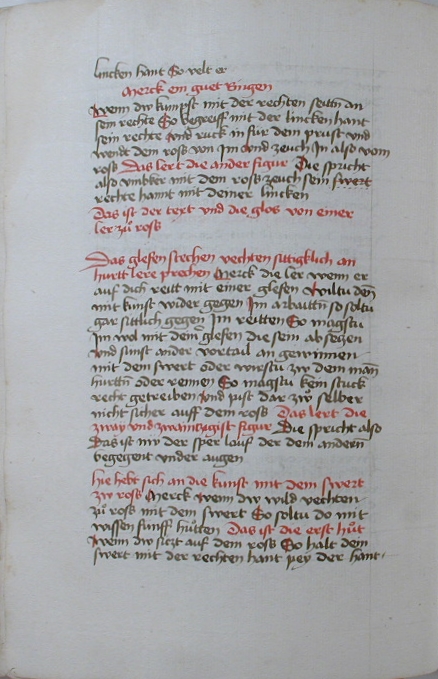 lincken hant So velt er
Merck ein guet Ringen
Wenn dw kumpst mit der rechten seitñ an
sein rechte So begreiff mit der lincken hant
sein rechte Vnd ruck in fur dein prust vnd
wendt dem ross von Im Vnd zeuch In also vom
ross Das lert die ander figur Die spricht
also vmbker mit dem ross zeuch sein swert
rechte hannt mit deiner lincken
Das ist der text vnd die glos von einer
ler zů ross
Das glefen stechen vechten sittigklich an
hurtt lere prechen Merck die ler wenn er
auf dich reitt mit einer glefen Wiltu deñ
mit kunst wider gegen Im arbaittñ so soltu
gar sittlich gegen Im reitten So magstu
Im wol mit dem glefen die sein ab setzen
Vnd sunst ander vortail an gewinnen
mit dem swert oder wirstu zw dem mañ
hurttñ oder reinen So magstu kein stuck
recht getreiben Vnd pist dar zw selber
nicht sicher auff dem ross Das lert die
zway vnd zwaintzigist figur Die spricht also
Das ist nw der sper lauf der dem andern
begegent vnder augen
hie hebt sich an die kunst mit dem swert
zw ross Merck wenn dw wild vechten
zů ross mit dem swert So soltu do mit
wissen funff hůtten Das ist die erst hůt
Wenn dw siczt auf dem ross So halt dein
swert mit der rechten hant pey der hant